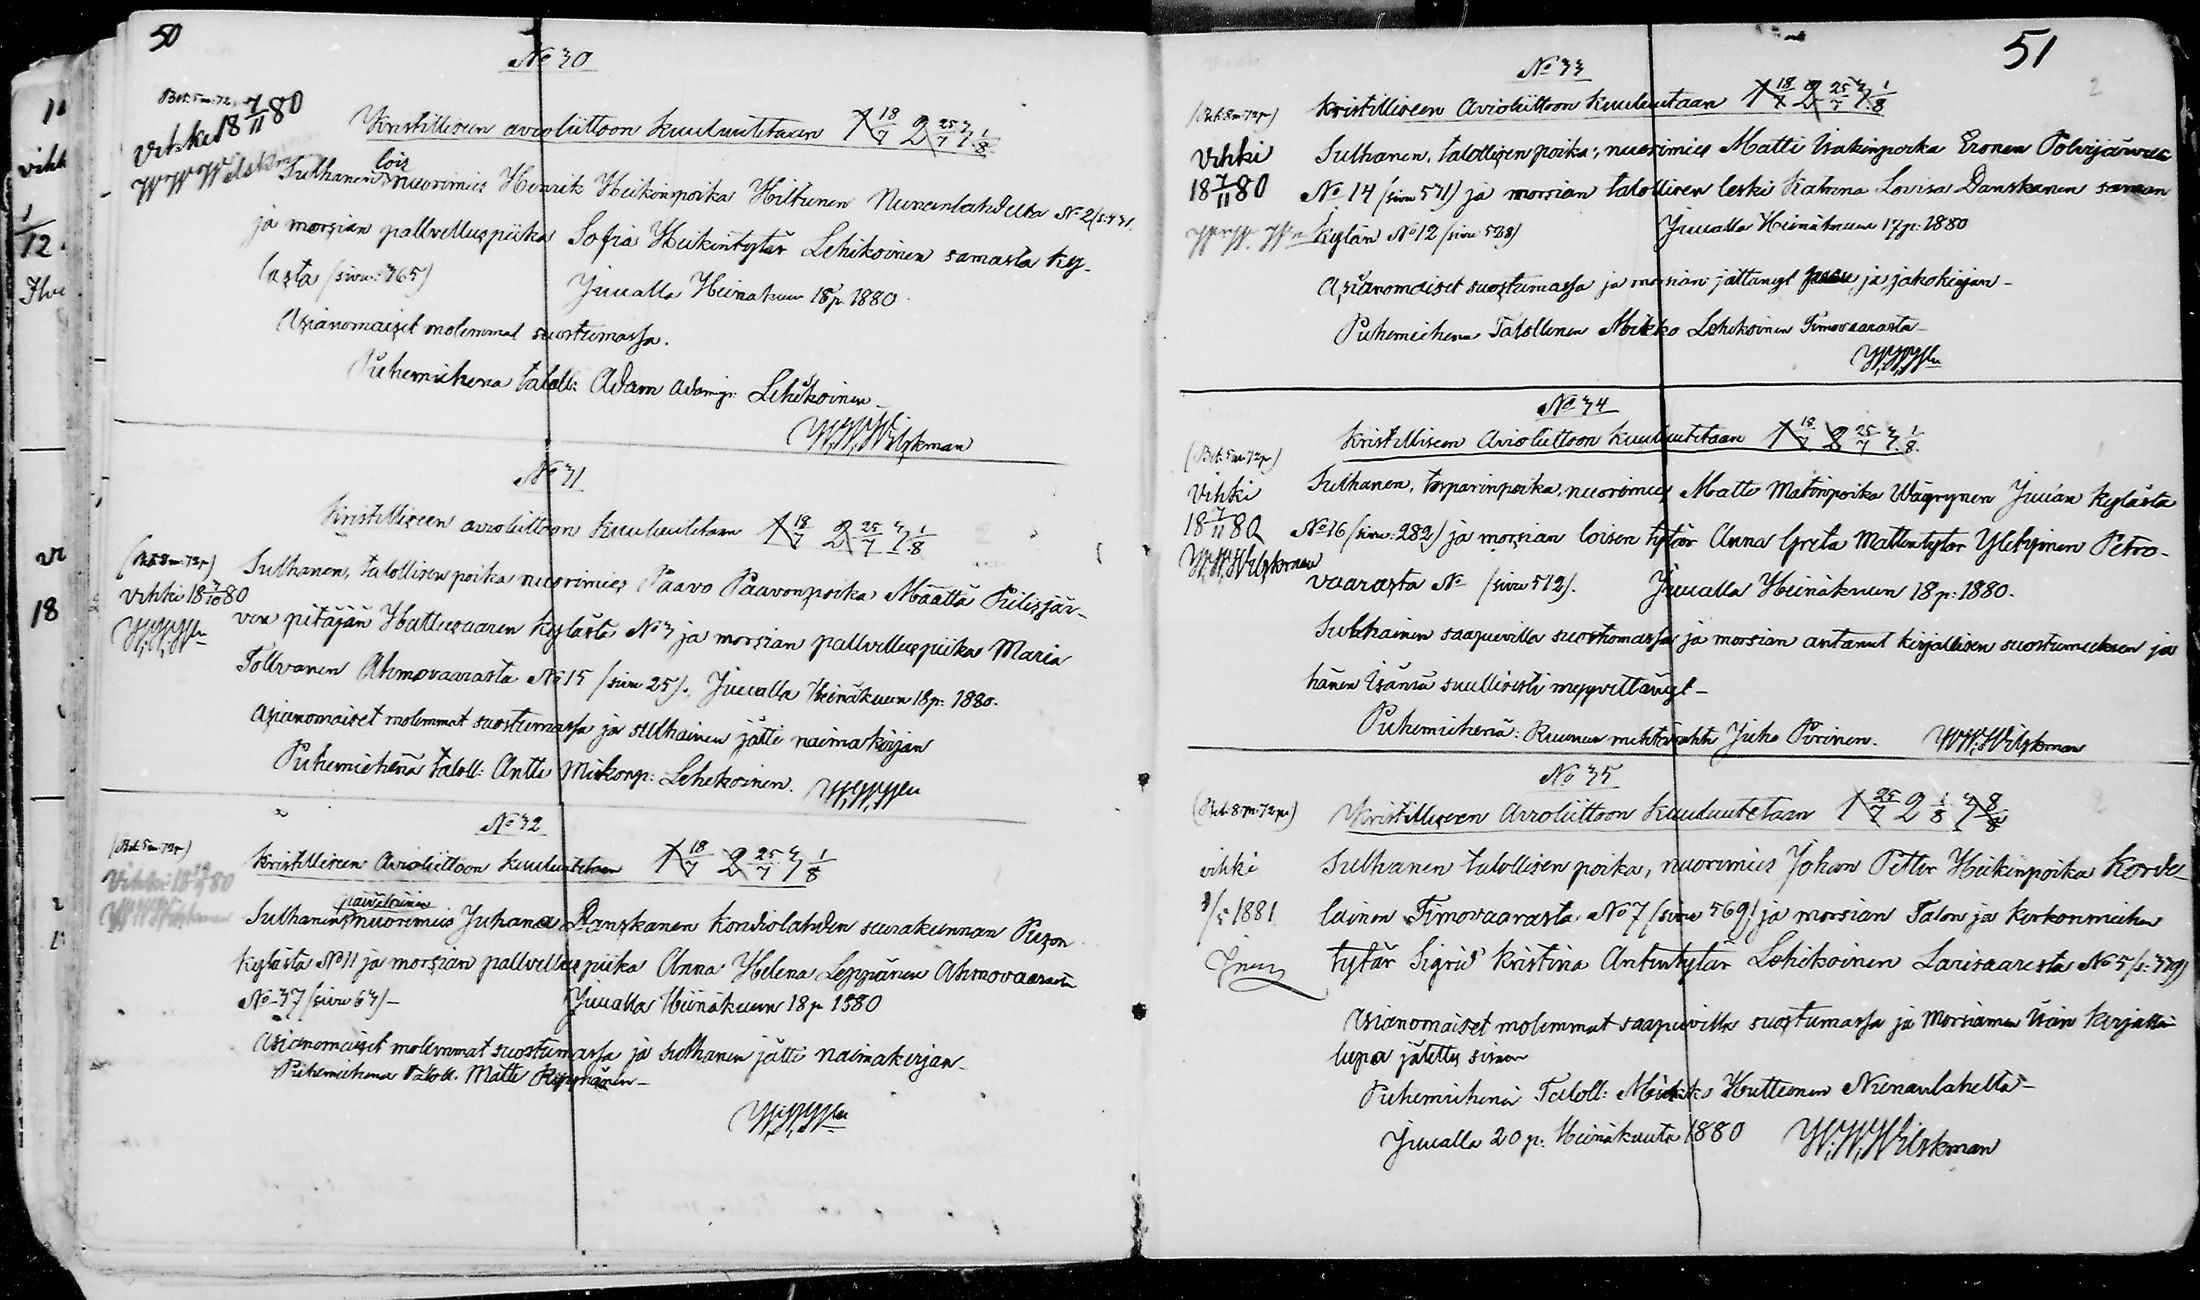 50
No 30
Bet. 5 m. 72 p.
vihki 18 7/11 80
W W Wilskman
Kristilliseen avioliittoon kuuluutetaan 1 18/7 2 25/7 3 1/8
lois
Sulhanen nuorimies Henrik Heikinpoika Hiltunen Nunanlahdelta No 2
ja morsian palvelluspiika Sofia Heikintytär Lehikoinen samasta ky-
lästä (sivu: 365)
Juualla Heinäkuun 18 p. 1880.
Asianomaiset molemmat suostumassa.
Puhemiehenä taloll: Adam Adamip: Lehikoinen
W.W.Wilskman
No 31
Kristilliseen avioliittoon kuuluutetaan 1 18/7 2 25/7 3 1/8
(Bet. 8 m. 72 p)
vihki 18 /10 80
W.W.Wn
Sulhanen, talollisen poika nuorimies Paavo Paavonpoika Määttä Pielisjär-
ven pitäjän Hattusaaren kylästä No 3 ja morsian palvelluspiika Maria
Tolvanen Ahmovaarasta No 15 (sivu 25). Juualla Heinäkuun 18 p: 1880.
Asianomaiset molemmat suostumassa ja sulhainen jätti naimakirjan
Puhemiehenä taloll: Antti Mikonp: Lehikoinen. W.W.Wn
No 32
(Bet. 5 m 72 p)
Vihki: 18 80
W W Wilskman
Kristilliseen Avioliittoon kuuluutetaan 1 18/7 2 25/7 3 1/8
päiväläinen
Sulhanen nuorimies Juhana Danskanen Kondiolahden seurakunnan Puson
kylästä No 11 ja morsian palvelluspiika Anna Helena Leppänen Ahmovaarasta
No 37 (sivu 63)-
Juualla Heinäkuun 18 p 1880
Asianomaiset molemmat suostumassa ja sulhanen jätti naimakirjan-
Puhemiehenä Taloll. Matti
W.W.Wn
51
No 33
(Bet. 8 m 72 p)
Kristilliseen Avioliittoon kuuluutaan 1 18/7 2 25/7 3 1/8
Vihki
18 7/11 80
Sulhanen, talollisen poika, nuorimies Matti Isakinpoika Eronen Polvijärveltä
No 14 (sivu 571) ja morsian talollisen leski Katrina Lovisa Danskanen saman
kylän No 12 (sivu 568)
Juualla Heinäkuun 17 p: 1880
Asianomaiset suostumassa ja morsian jättänyt ja jakokirjan-
Puhemiehenä Talollinen Mikko Lehikoinen Timovaarasta-
W.W.Wn
No 34
(Bet. 5 m 72 p)
Kristilliseen Avioliittoon kuuluutetaan 1 18/7 2 25/7 3 1/8.
Vihki
18 7/11 80
W.W.Wilskman
Sulhanen, torparinpoika, nuorimies Matti Matinpoika Wäyrynen Juuan kylästä
No 16 (sivu: 282) ja morsian loisen tytär Anna Greta Matintytär Yletyinen Petro-
vaarasta No (sivu 512).
Juualla Heinäkuun 18 p: 1880.
Sulhainen saapuvilla suostumassa ja morsian antanut kirjallisen suostumuksen ja
hänen Isänsä suullisesti myyvittänyt-
Puhemiehenä: Ruunun mehtävahti Juho Piirinen. W.W.Wilskman
No 35
(Bet. 8 m 72 pi)
Kristilliseen Avioliittoon kuuluutetaan 1 25/7 2 1/8 3 8/8
vihki
/5 1881
Sulhanen talollisen poika, nuorimies Johan Petter Heikinpoika Korde-
lainen Timovaarasta No 7 (sivu 569) ja morsian Talon ja kirkonmiehen
tytär Sigrid Kristina Antintytär Lehikoinen Larisaaresta No 5 (s: 379)
Asianomaiset molemmat saapuvilla suostumassa ja Morsiamen Isän kirjalli
lupa jätetty siinen
Puhemiehenä Taloll: Mikko Huttunen Nunanlahelta-
Juualla 20 p: Heinäkuuta 1880 W.W.Wilskman